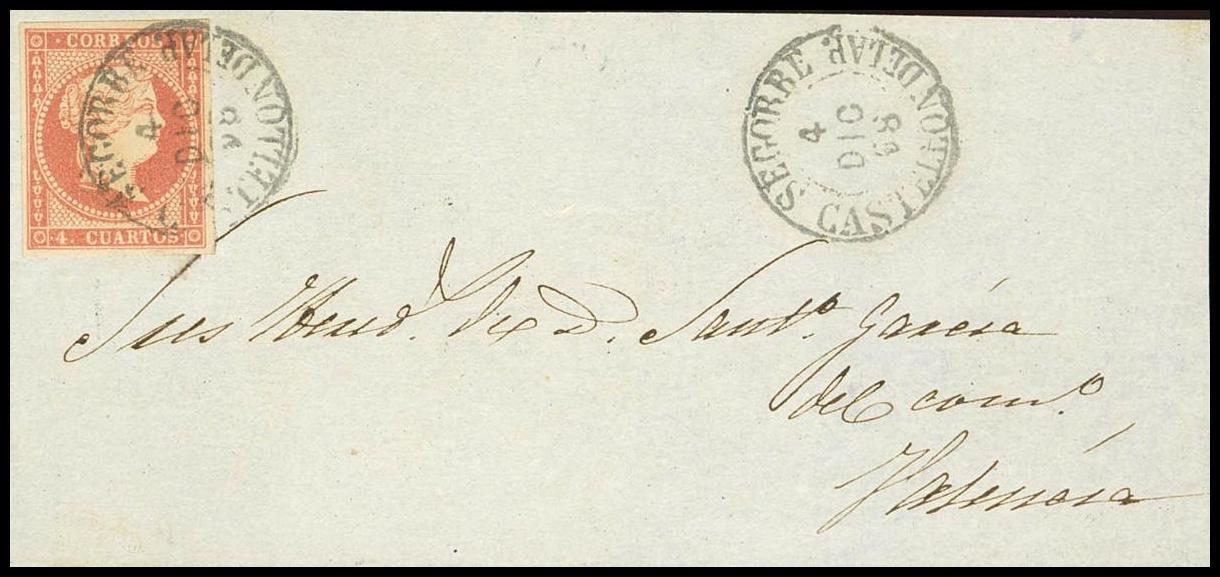 CORREOS
4. CUARTOS.
SEGORBE
CASTELLON DE LA P.
4
DIC
58
SEGORBE
CASTELLON DE LA P.
4
DIC
58
de D. Santº. García
del comº.
Valencia